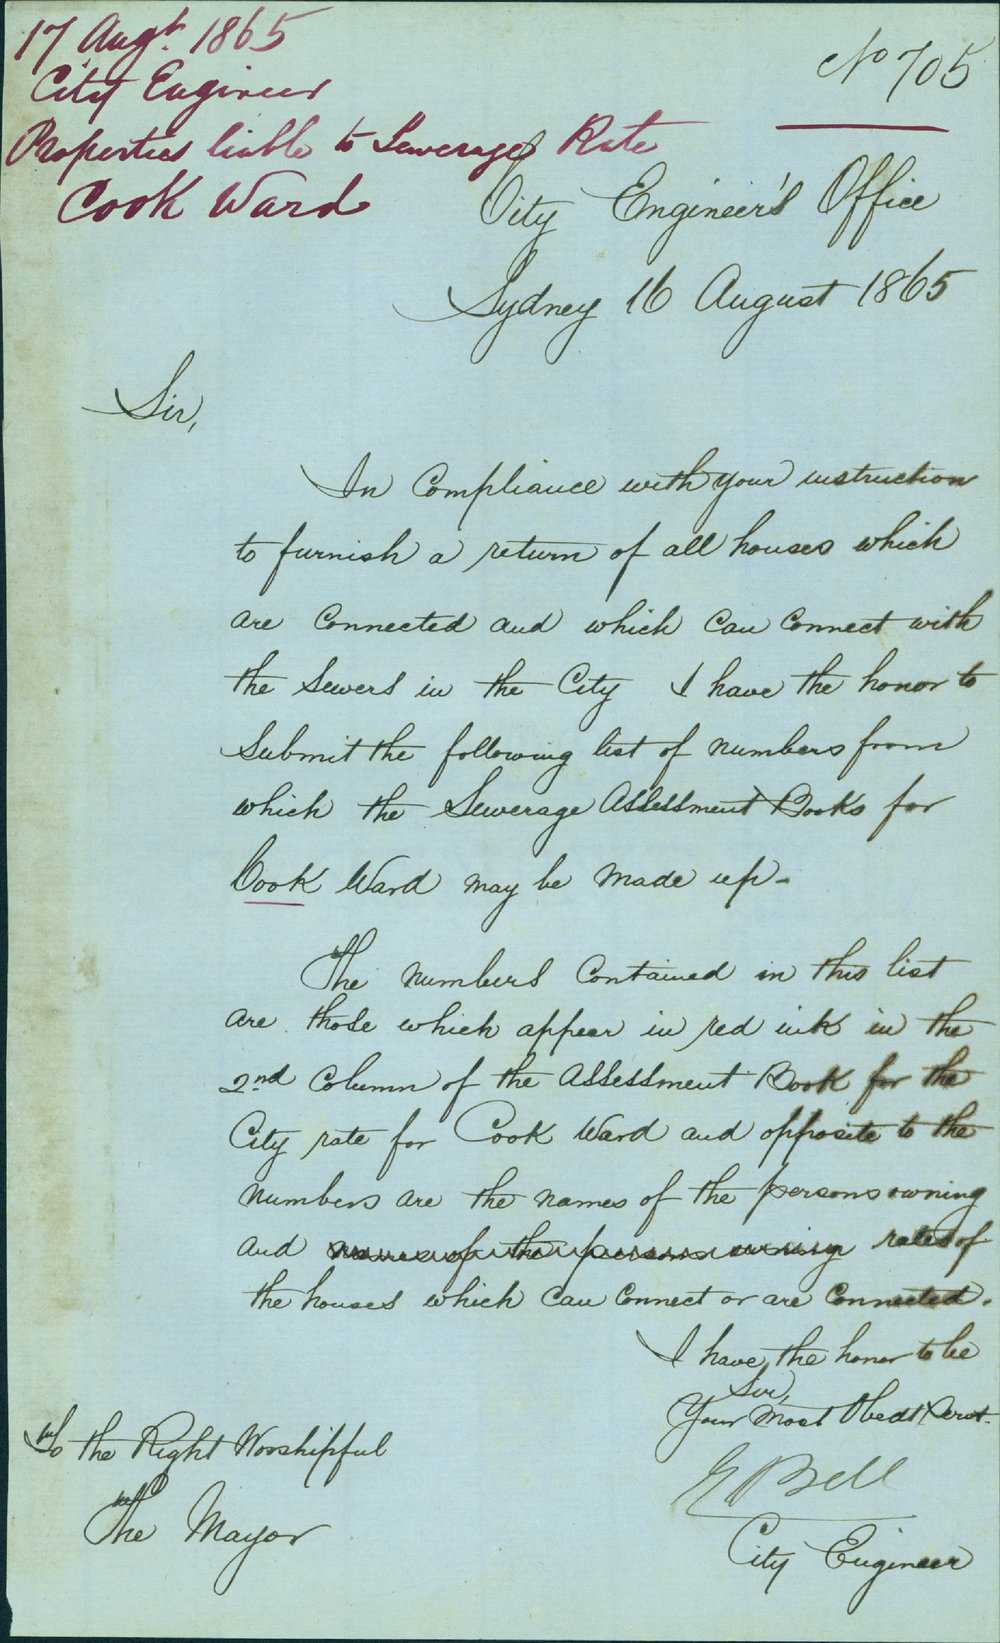 17 Augt. 1865
City Engineer
Properties liable to Sewerage Rate
Cook Ward
No 705
City Engineer's Office
Sydney 16 August 1865
Sir,
In Compliance with your instruction
to furnish a return of all houses which
are Connected and which Can Connect with
the Sewers in the City I have the honor to
Submit the following list of numbers from
which the Sewerage Assessment Books for
Cook Ward may be made up -
The numbers Contained in this list
are those which appear in red ink in the
2nd Column of the Assessment Book for the
City rate for Cook Ward and opposite to the
numbers are the names of the persons owning
and names of the persons owning rates of
the houses which Can Connect or are Connected.
I have the honor to be
Sir,
Your Most Obedt Servt.
E Bell
City Engineer
To the Right Worshipful
The Mayor